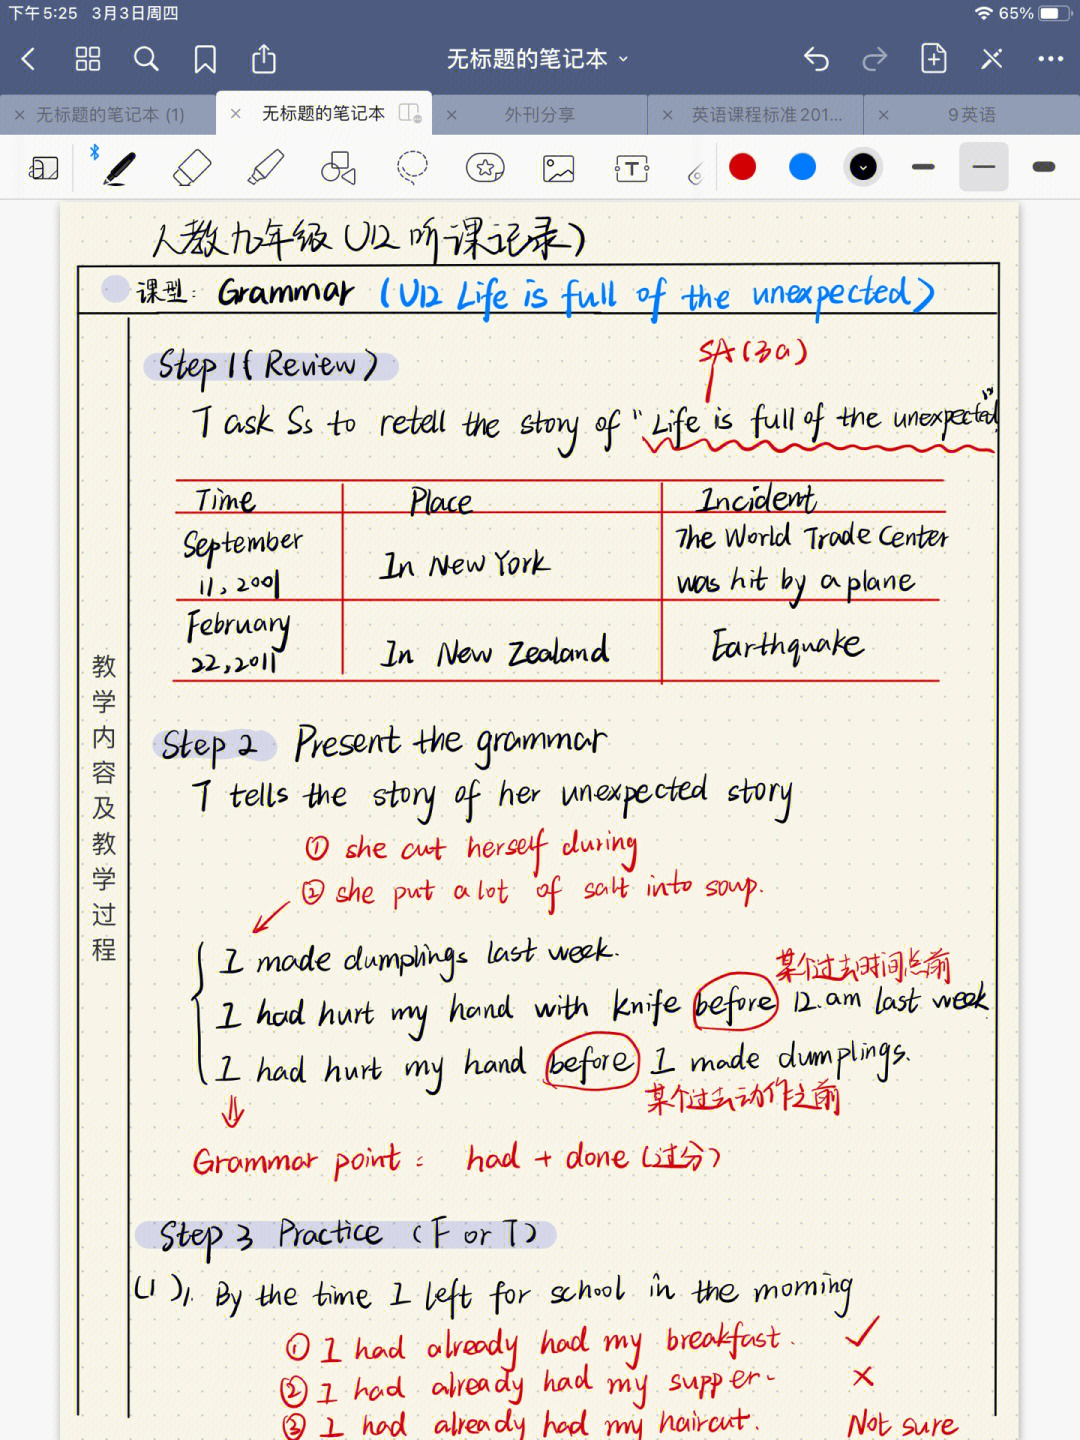 下午5:25 3月3日周四
65%
无标题的笔记本
无标题的笔记本 (1)
无标题的笔记本
外刊分享
英语课程标准201...
9英语
T
人教九年级 U12 听课记录)
课型: Grammar (U12 Life is full of the unexpected)
Step 1 (Review)
SA (3a)
T ask Ss to retell the story of "Life is full of the unexpected"
Time Place Incident
September 11, 2001 In New York The World Trade Center was hit by a plane
February 22, 2011 In New Zealand Earthquake
教学内容及教学过程
Step 2 Present the grammar
T tells the story of her unexpected story
① she cut herself during
② she put a lot of salt into soup.
I made dumplings last week.
某个过去时间点前
I had hurt my hand with knife before 12.am last week
I had hurt my hand before I made dumplings.
某个过去动作之前
Grammar point: had + done (过分)
Step 3 Practice (F or T)
(1) 1. By the time I left for school in the morning
① I had already had my breakfast. ✓
② I had already had my supper. ×
③ I had already had my haircut. Not sure